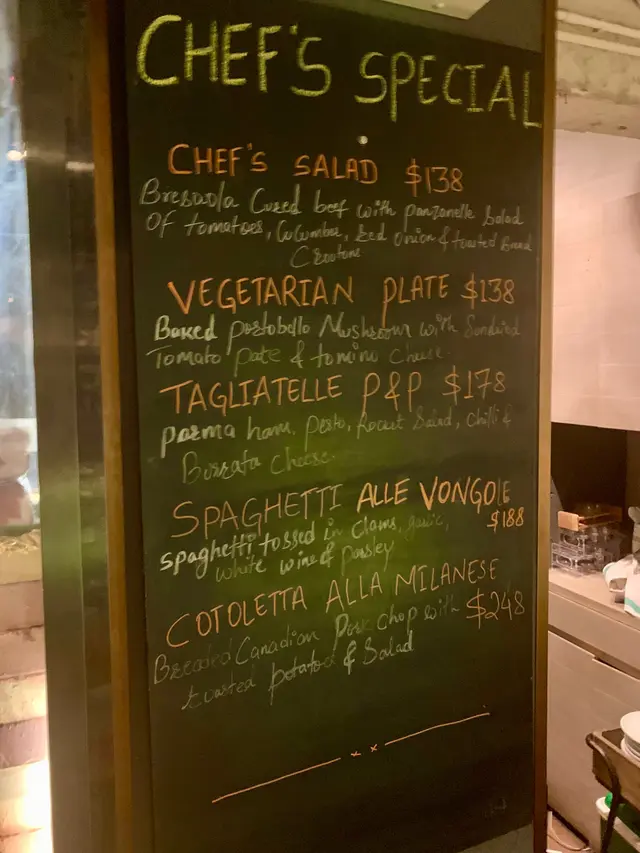 CHEF'S SPECIAL
CHEF'S SALAD $138
Bresaola Cured beef with panzanelle Salad
Of tomatoes, Cucumber, Red Onion & toasted Bread
Croutons
VEGETARIAN PLATE $138
Baked portobello Mushroom with Sundried
Tomato pate & tomino Cheese.
TAGLIATELLE P&P $178
parma ham, pesto, Rocket Salad, chilli &
Burrata Cheese.
SPAGHETTI ALLE VONGOLE
$188
spaghetti tossed in clams, garlic,
white wine & parsley
COTOLETTA ALLA MILANESE
$248
Breaded Canadian Pork chop with
roasted potatoes & Salad